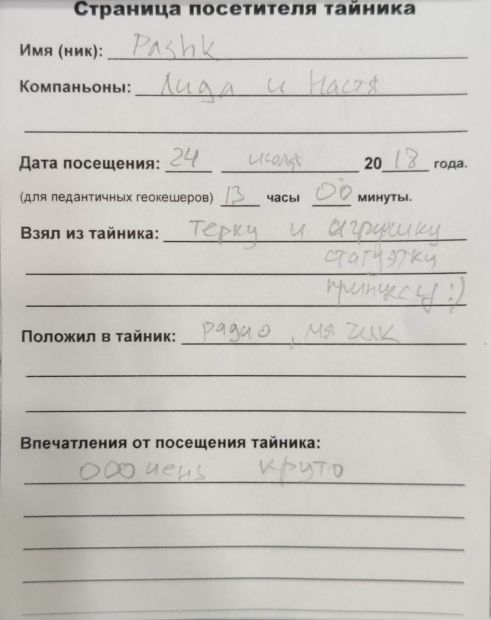 Страница посетителя тайника
Имя (ник): Pashk
Компаньоны: Лида и Настя
Дата посещения: 24 июля 2018 года.
(для педантичных геокешеров) 13 часы 00 минуты.
Взял из тайника: терку и игрушку
статуэтку
принцессу :)
Положил в тайник: радио, мячик
Впечатления от посещения тайника:
ООО чень круто